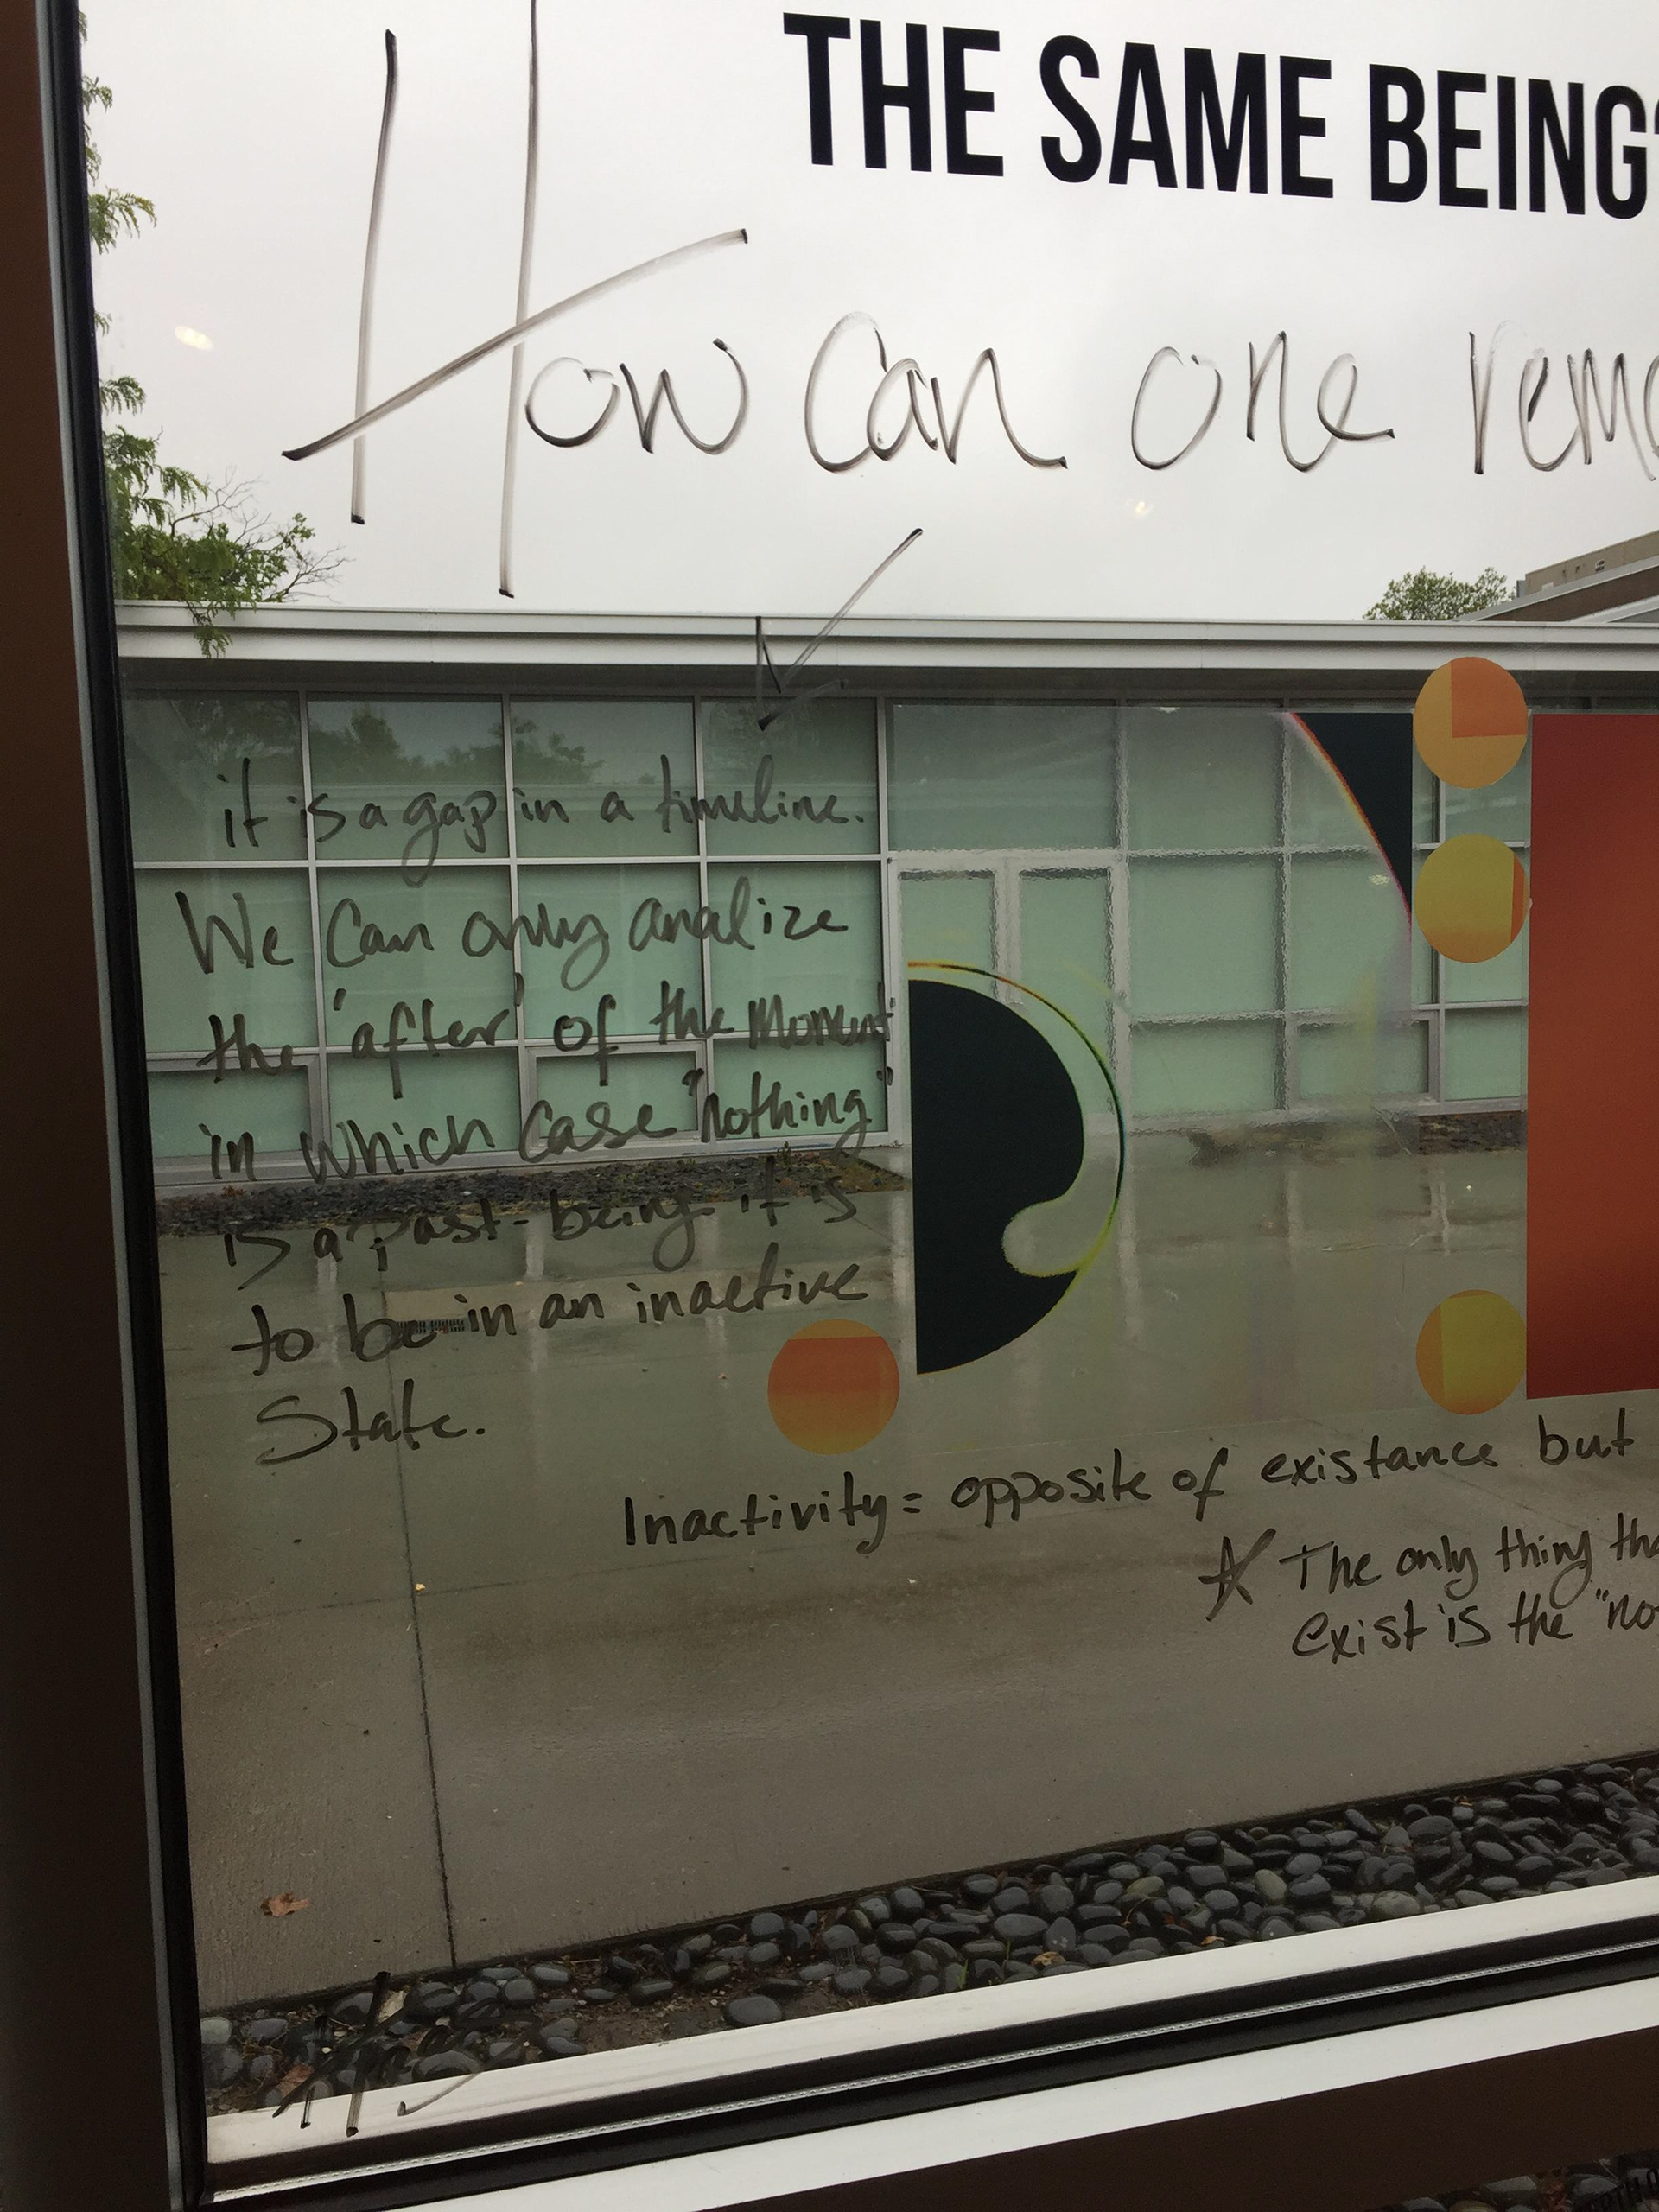 THE SAME BEING?
How can one
it is a gap in a timeline.
We can only analize
the 'after' of the moment
in which case "nothing"
is a past-being it is
to be in an inactive
State.
Inactivity = opposite of existance but
The only thing
exist is the